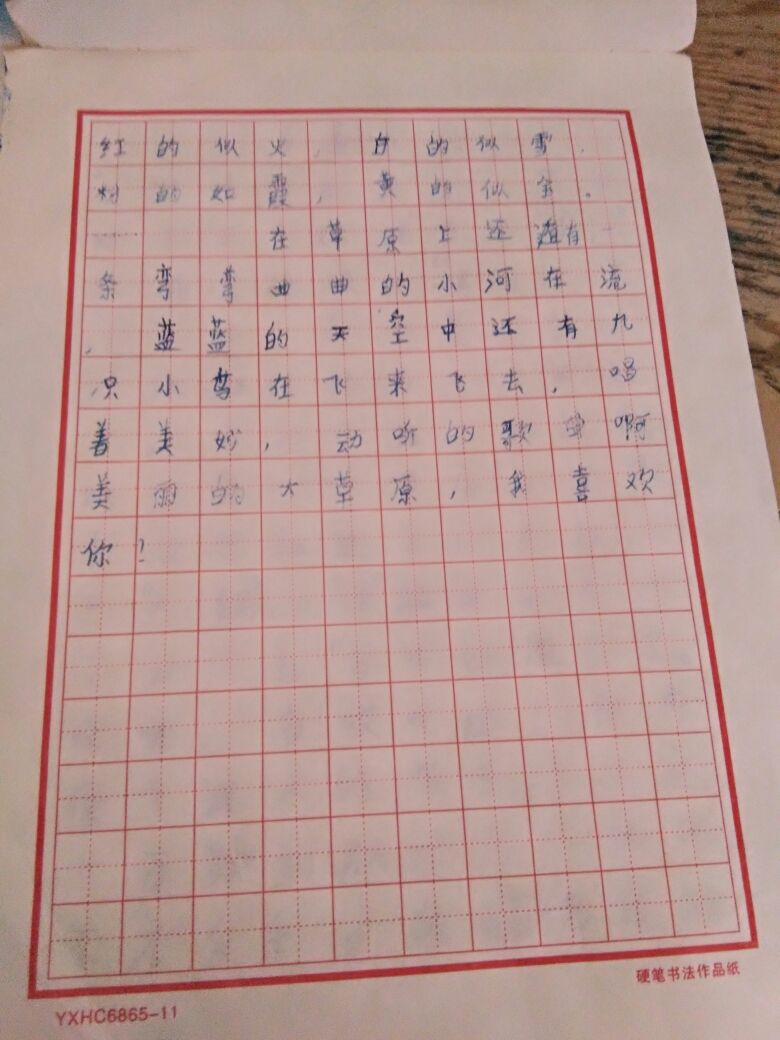 红的似火，白的似雪，
粉的如霞，黄的似金。
……在草原上还有
条弯弯曲曲的小河在流
，蓝蓝的天空中还有九
只小鸟在飞来飞去，唱
着美妙，动听的歌声啊
美丽的大草原，我喜欢
你！
硬笔书法作品纸
YXHC6865-11